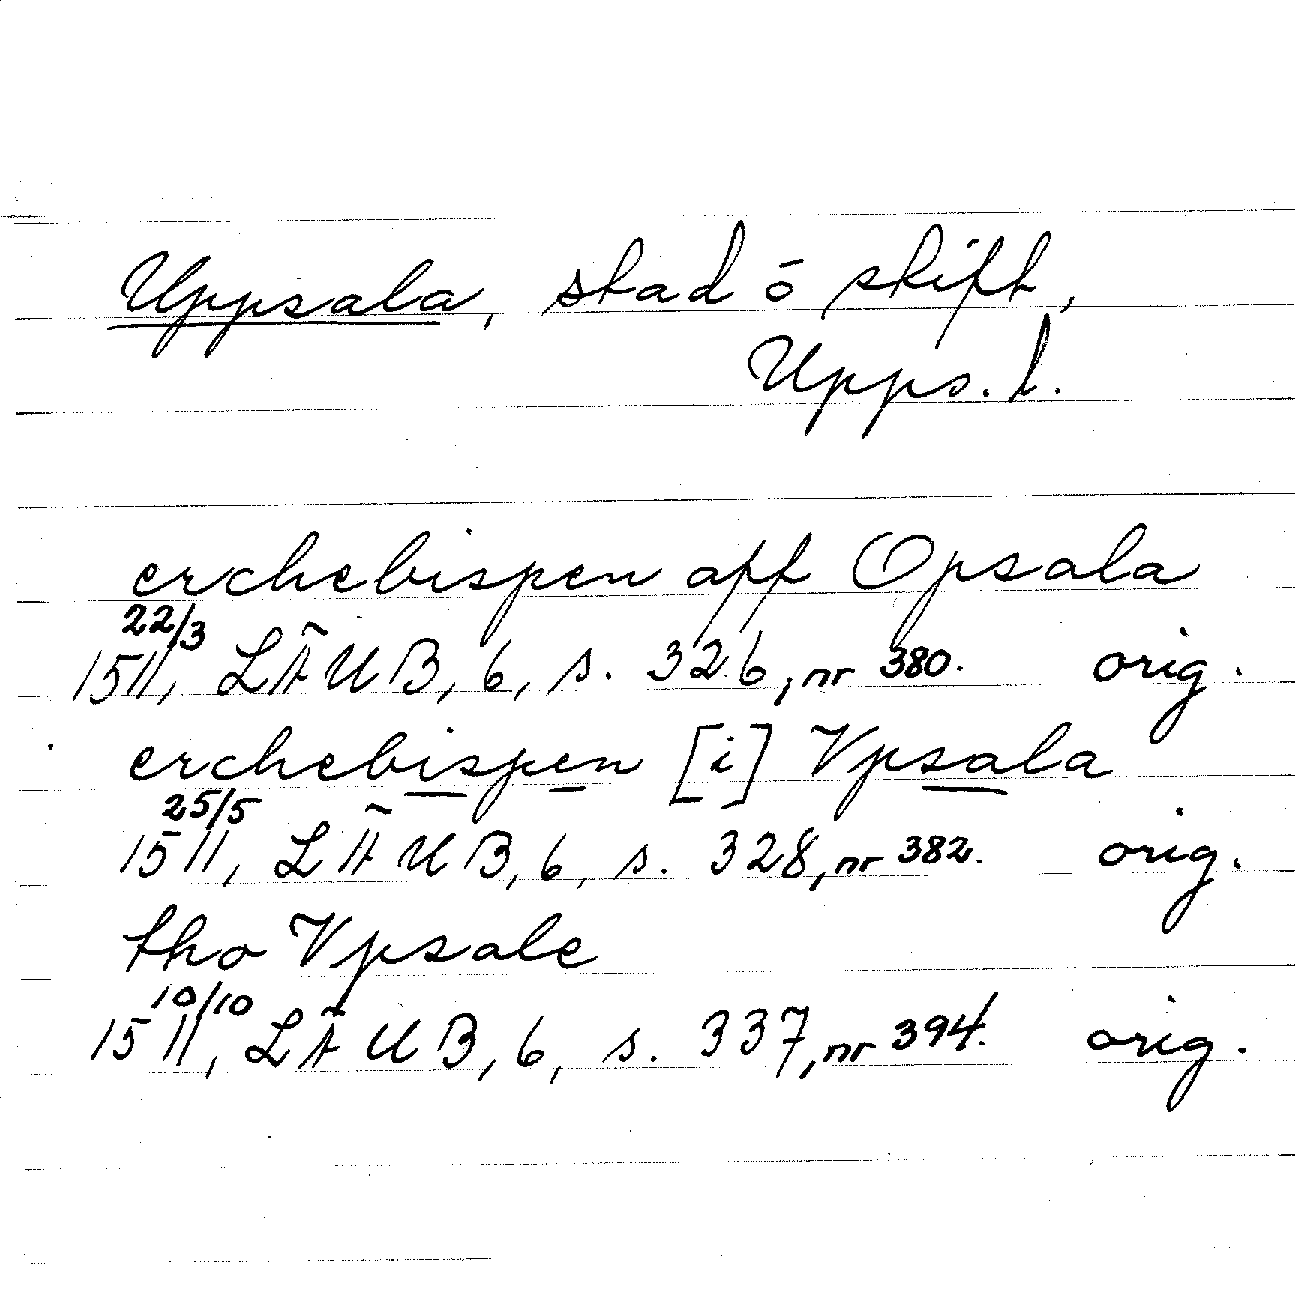 Uppsala, stad ō skift,
Upps. l.
erchebispen aff Opsala
22/3
1511, LÄUB, 6, s. 326, nr 380. orig.
erchebispen [i] Vpsala
25/5
1511, LÄUB, 6, s. 328, nr 382. orig.
tho Vpsale
10/10
1511, LÄUB, 6, s. 337, nr 394. orig.